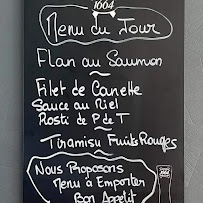 1664
Menu du Jour
Flan au Saumon
Filet de Canette
Sauce au Miel
Rosti de P de T
Tiramisu Fruits Rouges
Nous Proposons
Menu à Emporter
Bon Appetit